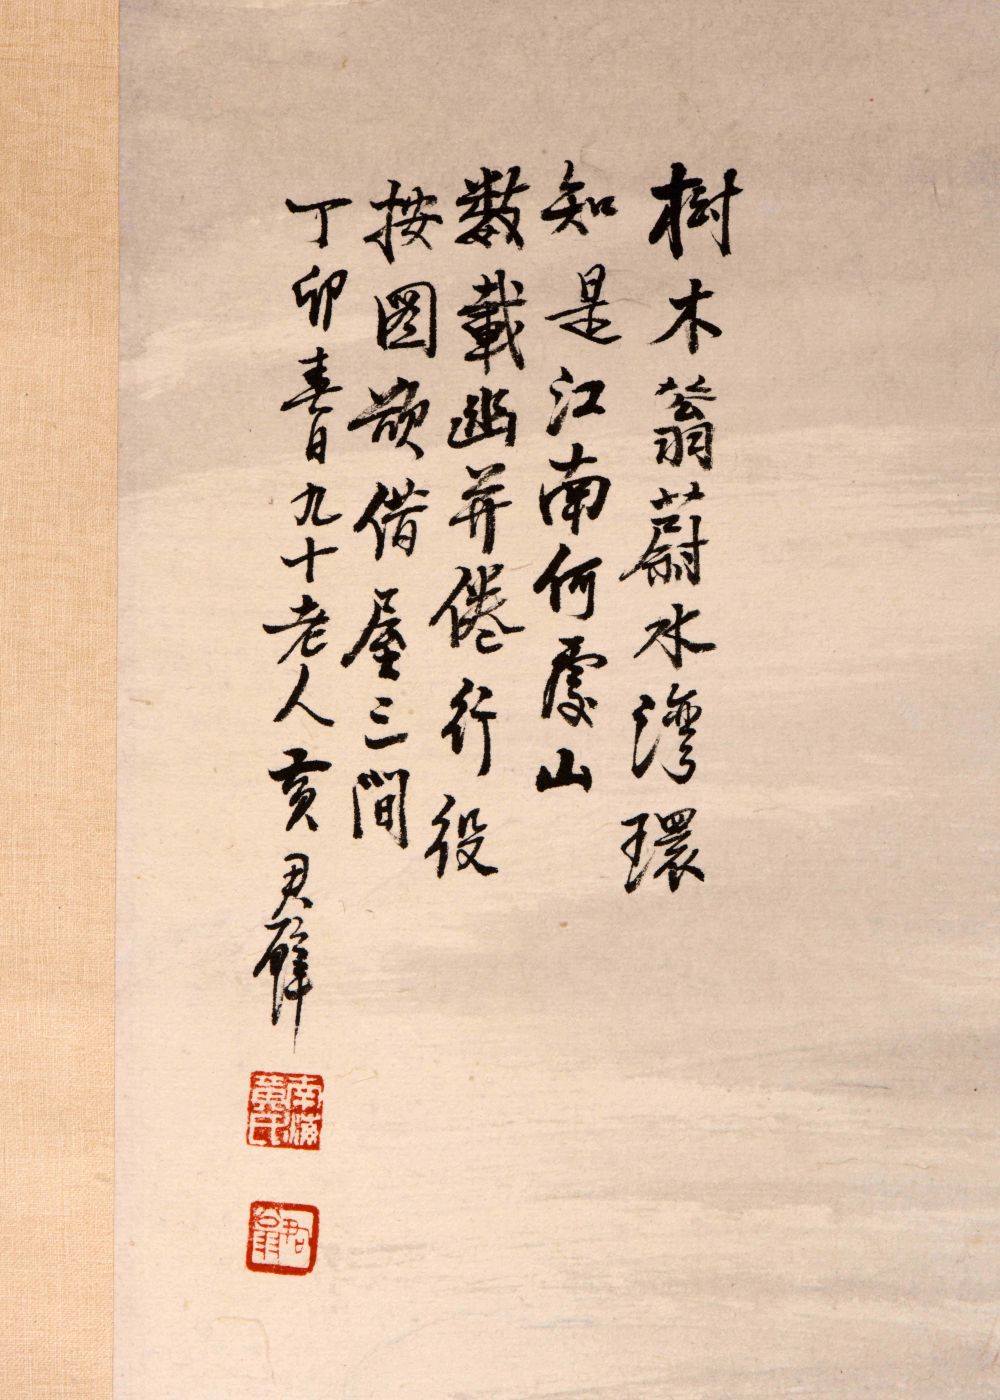 樹木蓊蔚水灣環
知是江南何處山
數載幽并倦行役
按圖欲借屋三間
丁卯春日九十老人黃君璧
南海黃氏
君璧